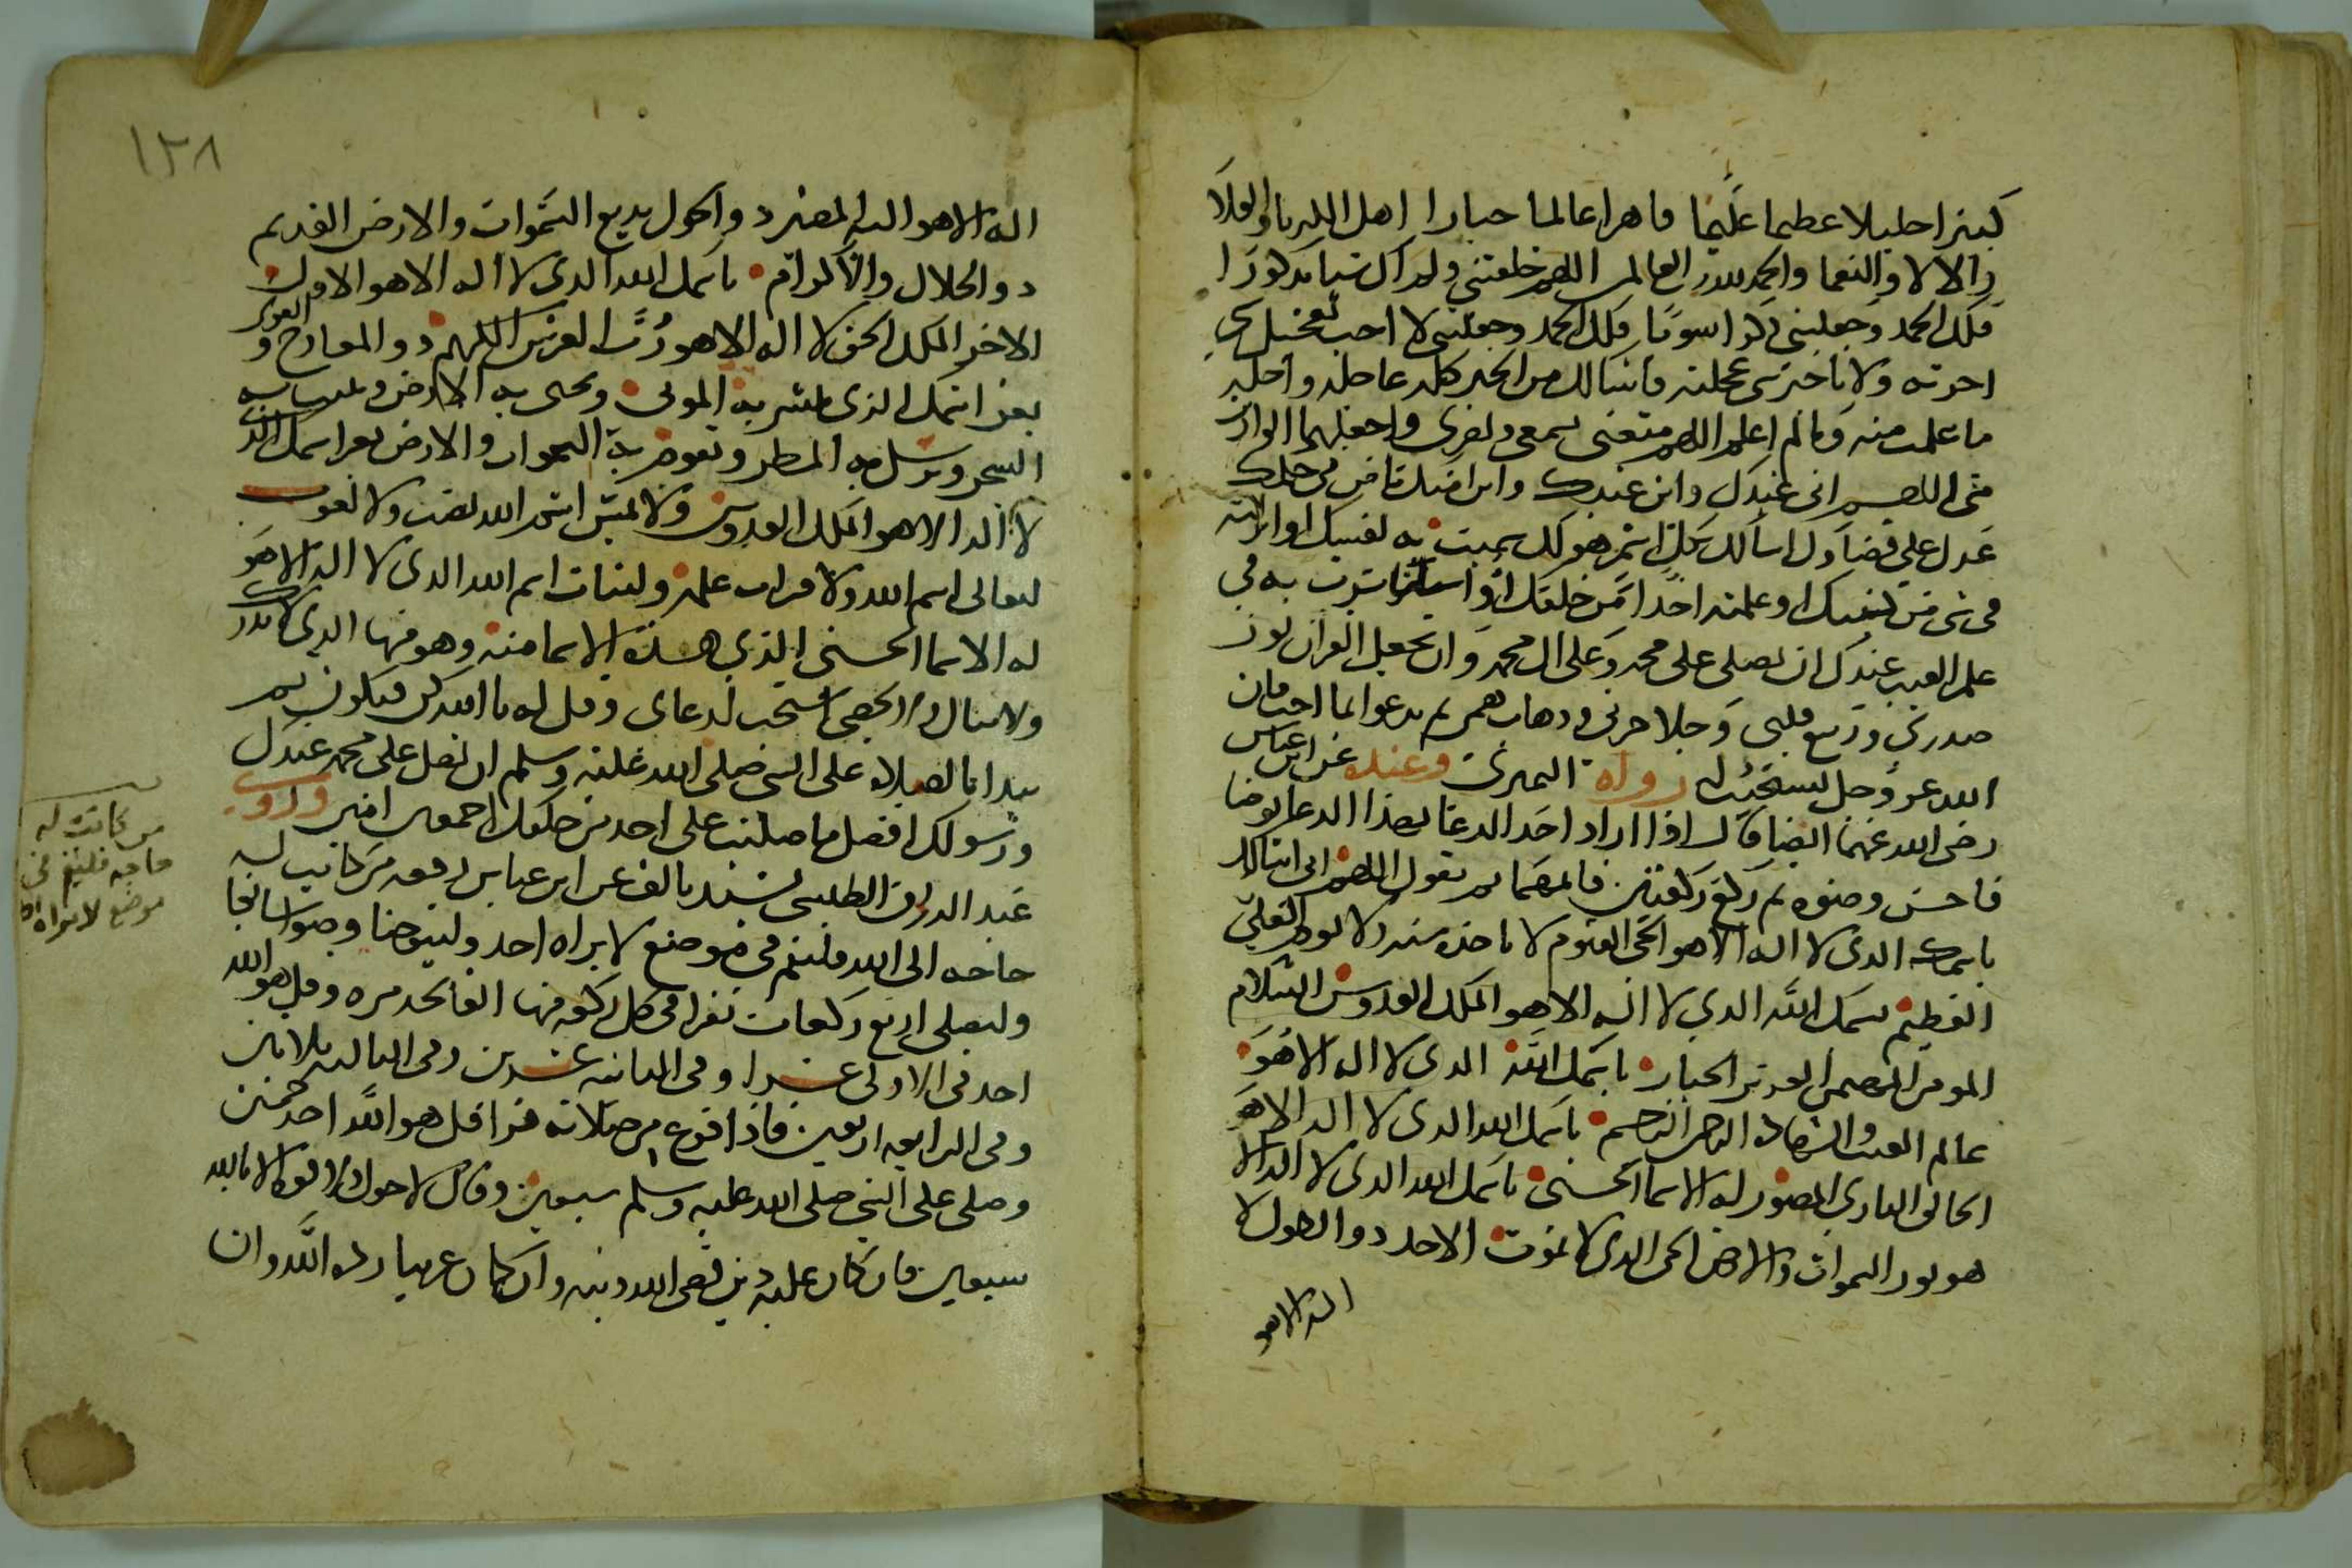 كبيرا جليلا عظيما عليما قاهرا عالما جبارا اهل الكبريا والعلا
والالا والنعما والحمد لله رب العالمين اللهم خلقتني ولم اك شيا مذكورا
فلك الحمد وجعلتني ذكرا سويا فلك الحمد وجعلتني لا احب تعجيل شي
اخرته ولا تاخير شي عجلته فاسالك من الخير كله عاجله واجله
ما علمت منه وما لم اعلم اللهم متعني بسمعي وبصري واجعلهما الوارث
مني اللهم اني عبدك وابن عبدك وابن امتك ماض في حكمك
عدل علي قضاؤك اسالك بكل اسم هو لك سميت به نفسك او انزلته
في شي من كتبك او علمته احدا من خلقك او استاثرت به في
علم الغيب عندك ان تصلي على محمد وعلى ال محمد وان تجعل القران نور
صدري وربيع قلبي وجلا حزني وذهاب همي ثم يدعو بما احب فان
الله عز وجل يستجيب له رواه النميري وعنده عن ابن عباس
رضى الله عنهما ايضا قال اذا اراد احد الدعا بهذا الدعا توضا
فاحسن وضوه ثم ركع ركعتين فاتمهما ثم يقول اللهم اني اسالك
باسمك الذي لا اله الا هو الحي القيوم لا تاخذه سنة ولا نوم العلي
العظيم باسمك الله الذي لا اله الا هو الملك القدوس السلام
المومن المهيمن العزيز الجبار باسمك الله الذي لا اله الا هو
عالم الغيب والشهادة الرحمن الرحيم باسمك الله الذي لا اله الا هو
الخالق الباري المصور له الاسما الحسنى باسمك الله الذي لا اله الا
هو نور السموات والارض الحي الذي لا يموت الاحد ذو الطول لا
اله الا هو
١٢٨
اله الا هو اليه المصير ذو الحول بديع السموات والارض القديم
ذو الجلال والاكرام باسمك الله الذي لا اله الا هو الاول
الاخر الملك الحق لا اله الا هو رب العرش الكريم ذو المعارج و القوى
بعز اسمك الذي تنشر به الموتى وتحيي به الارض وتنبت به
الشجر وترسل به المطر وتقوم به السموات والارض بعز اسمك الذي
لا اله الا هو الملك القدوس ولا يمس اسم الله نصب ولا لغوب
تعالى اسم الله ولاقتراب علمه ولثبات اسم الله الذي لا اله الا هو
له الاسما الحسنى الذي هذه الاسما منه وهو منها الذي لا يدرك
ولا ينال ولا يحصى استجب لدعاي وقل له يا الله كن فيكون ثم
يبدا بالصلاه على النبي صلى الله عليه وسلم ان تصل على محمد عبدك
ورسولك افضل ما صليت على احد من خلقك اجمعين امين وروى
عبد الرزاق الطبسي بسند تالف عن ابن عباس رفعه من كانت له
حاجه الى الله فليقم في موضع لا يراه احد وليتوضا وضوا سابغا
وليصلي اربع ركعات يقرا في كل ركعه منها الفاتحه مره وقل هو الله
احد في الاولى عشرا وفي الثانيه عشرين وفي الثالثه ثلاثين
وفي الرابعه اربعين فاذا فرغ من صلاته قرا قل هو الله احد خمسين
وصلى على النبي صلى الله عليه وسلم سبعين وقال لا حول ولا قوة الا بالله
سبعين فان كان عليه دين قضى الله دينه وان كان غريبا رده الله وان
من كانت له
حاجه فليقم في
موضع لا يراه احد